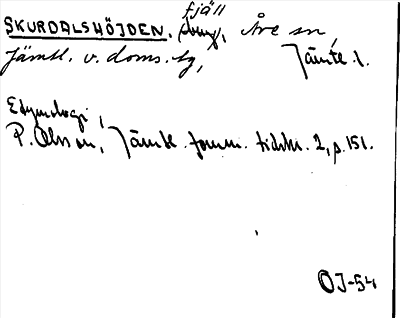 fjäll
SKURDALSHÖJDEN. Åre sn,
Jämtl. v. doms. tg, Jämtl. l.
Etymologi,
P. Olsson, Jämtl. fornm. tidskr. 2, s. 151.
OJ-54